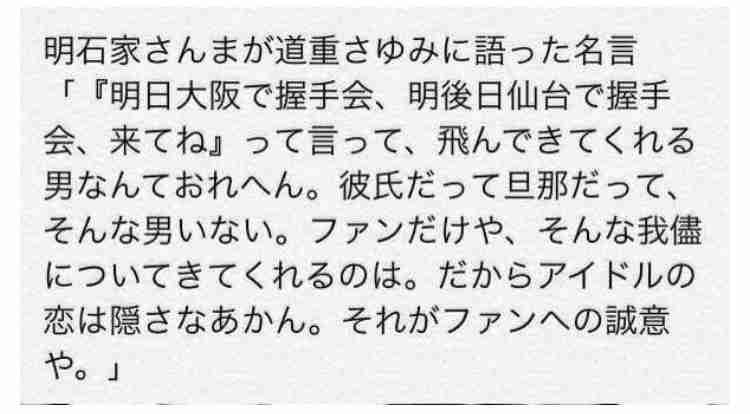 明石家さんまが道重さゆみに語った名言
「『明日大阪で握手会、明後日仙台で握手
会、来てね』って言って、飛んできてくれる
男なんておれへん。彼氏だって旦那だって、
そんな男いない。ファンだけや、そんな我儘
についてきてくれるのは。だからアイドルの
恋は隠さなあかん。それがファンへの誠意
や。」